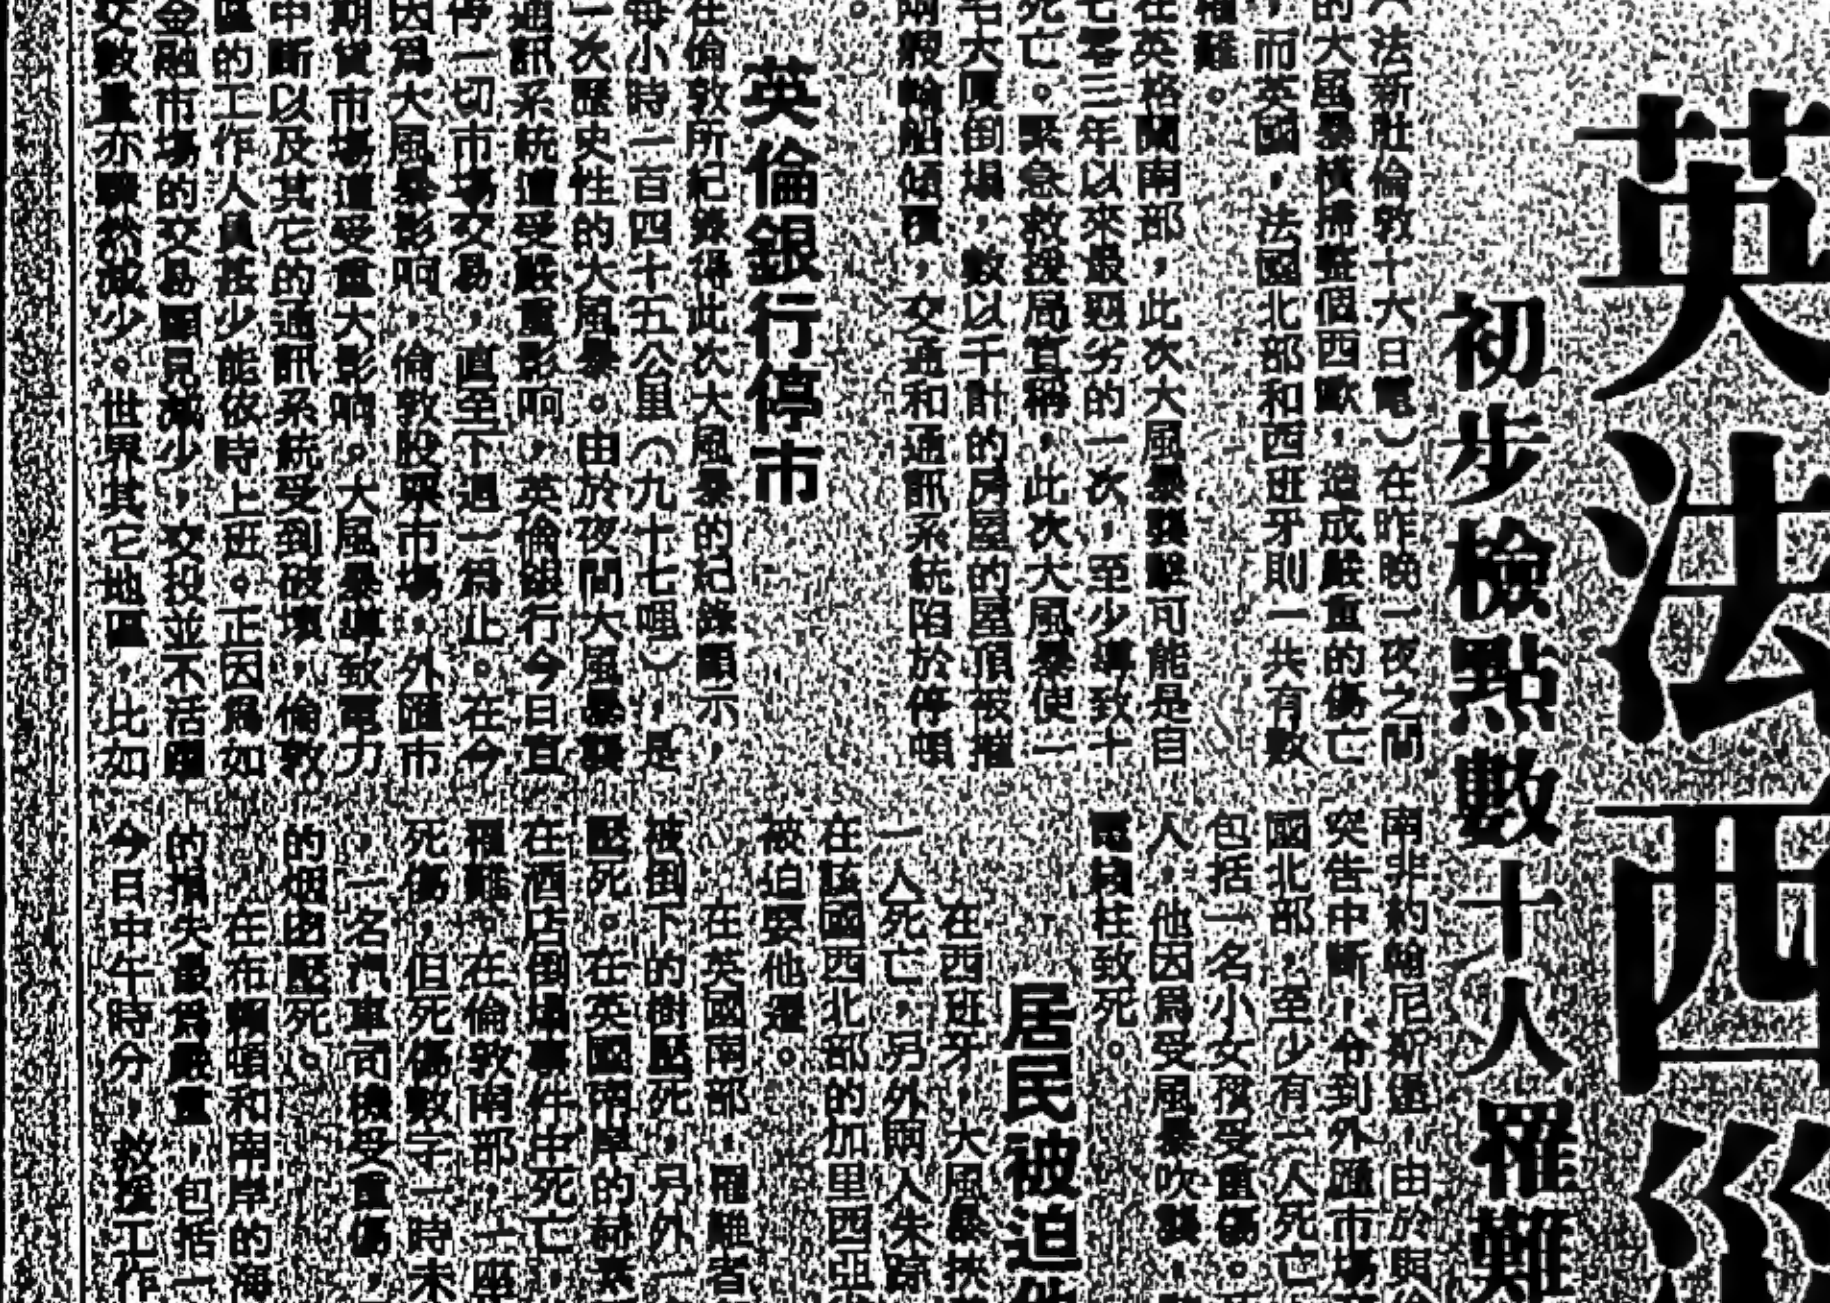 英法西災
初步檢點數十人罹難
（法新社倫敦十六日電）在昨晚一夜之間
的大風暴橫掃整個西歐，造成嚴重的傷亡
，而英國，法國北部和西班牙則一共有數
罹難。
在英格蘭南部，此次大風暴襲擊可能是自
七零三年以來最惡劣的一次，至少導致十
死亡。緊急救援局宣稱，此次大風暴使一
大廈倒塌，數以千計的房屋的屋頂被摧
兩艘輪船傾覆，交通和通訊系統陷於停頓
。
英倫銀行停市
在倫敦所紀錄得此次大風暴的紀錄顯示，
每小時一百四十五公里（九十七哩），是
一次歷史性的大風暴。由於夜間大風暴襲
通訊系統遭受嚴重影响，英倫銀行今日宣
停一切市場交易，直至下週一爲止。在今
因爲大風暴影响，倫敦股票市場，外匯市
期貨市場遭受重大影响。大風暴導致電力
中斷以及其它的通訊系統受到破壞，倫敦
區的工作人員甚少能依時上班。正因爲如
金融市場的交易顯見減少，交投並不活躍
交數量亦驟然減少。世界其它地區，比如
南非約翰尼斯堡，由於與
突告中斷，令到外匯市場
國北部，至少有二人死亡
包括一名小女孩受重傷。
人，他因爲受風暴吹襲，
電線柱致死。
居民被迫
在西班牙，大風暴挾
一人死亡，另外兩人失踪
在該國西北部的加里西亞
被迫要他遷。
在英國南部，罹難者
被倒下的樹壓死，另外
壓死。在英國南岸的
在酒店倒塌事件中死亡
罹難。在倫敦南部，一座
死傷，但死傷數字一時未
，一名汽車司機受重傷，
的烟囱壓死。
在布賴頓和南岸的海
的損失最爲嚴重，包括一
今日中午時分，救援工作